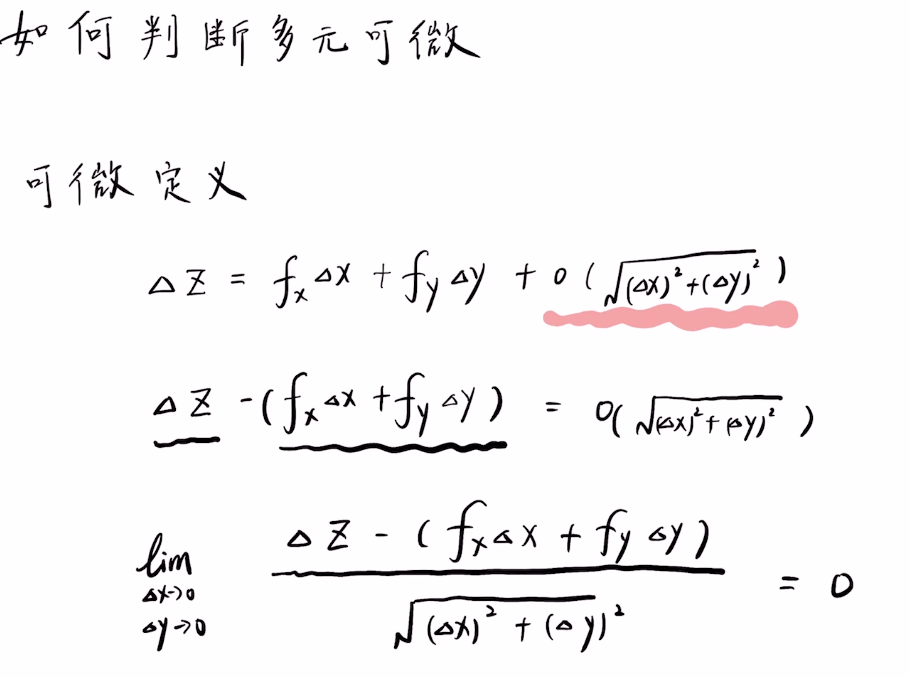 如何判断多元可微
可微定义
△Z = fₓ△x + fᵧ△y + o(√((△x)²+(△y)²))
△Z -(fₓ△x + fᵧ△y) = o(√((△x)²+(△y)²))
lim △x→0 △y→0 (△Z - (fₓ△x + fᵧ△y)) / √((△x)²+(△y)²) = 0